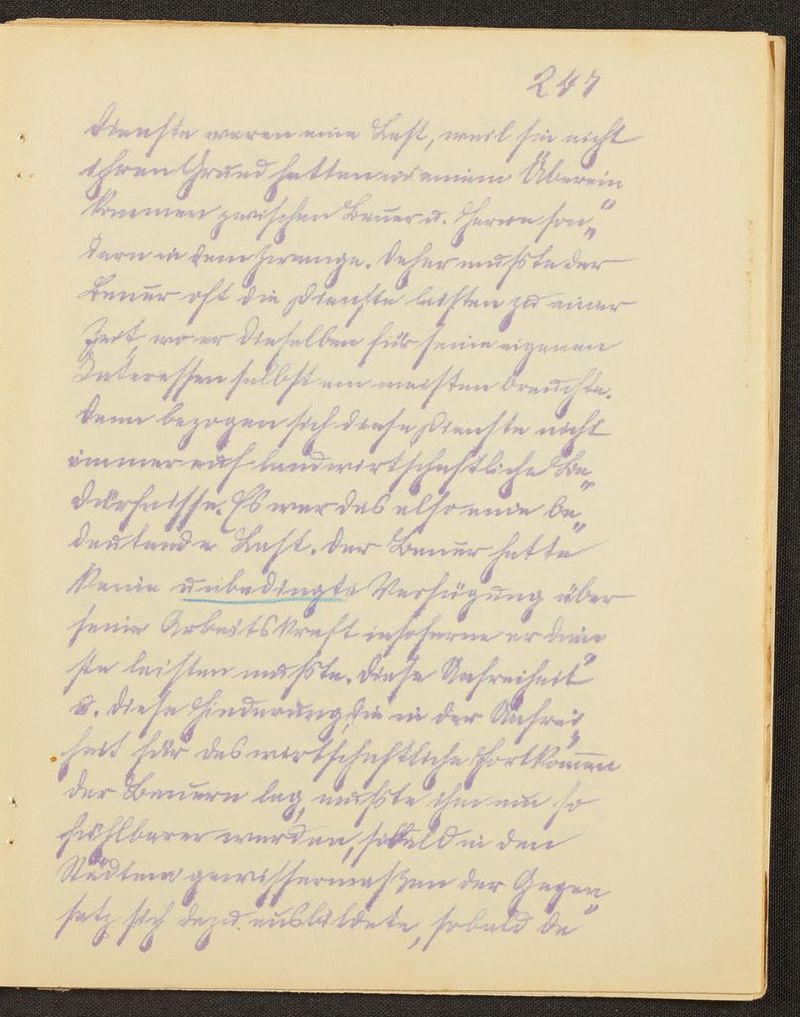 247
Dienste waren eine Last, weil sie nicht
ihren Grund hatten in einem Überein
kommen zwischen Bauer u. Herrn son„
dern in dem Zwange. Daher mußte der
Bauer oft die Dienste leisten zu einer
Zeit, wo er dieselben für seine eigenen
Interessen selbst am meisten brauchte.
Dann bezogen sich diese Dienste nicht
immer auf landwirtschaftliche Be„
dürfnisse. Es war das also eine be„
deutende Last. Der Bauer hatte
keine unbedingte Verfügung über
seine Arbeitskraft insoferne er Dien
ste leisten mußte. Diese Unfreiheit
u. diese Hinderung, die in der Unfrei„
heit für das wirtschaftliche Fortkommen
der Bauern lag, mußte ihm um so
fühlbarer werden, sobald in den
Städten gewissermaßen der Gegen„
satz sich dazu ausbildete, sobald da